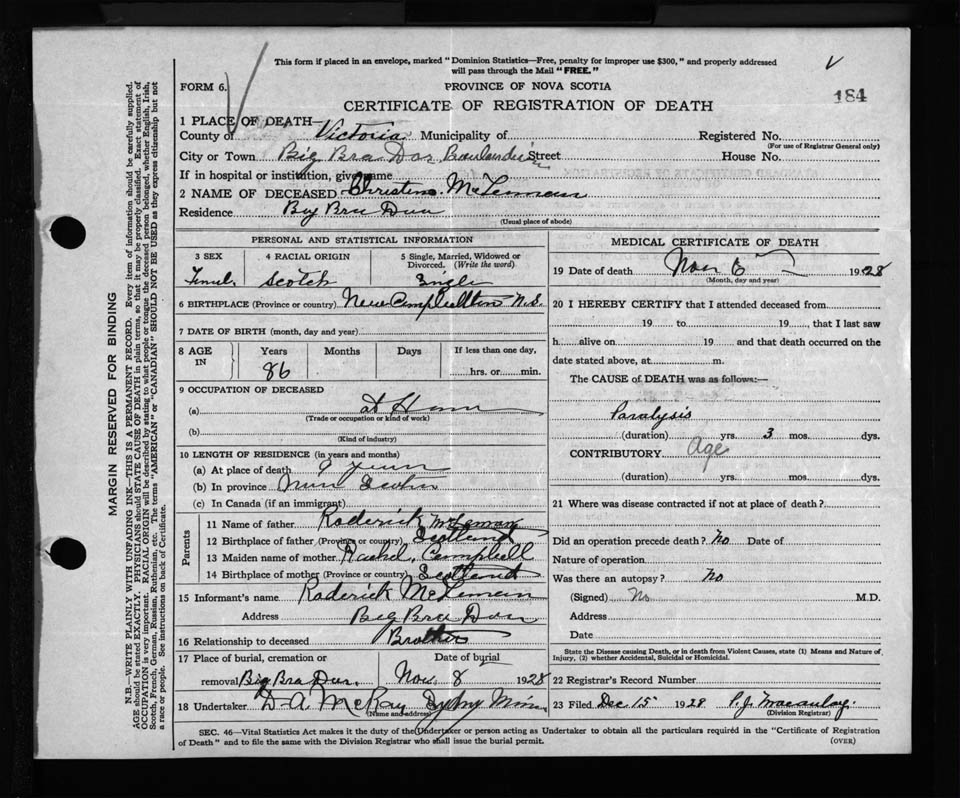 This form if placed in an envelope, marked "Dominion Statistics—Free, penalty for improper use $300," and properly addressed
will pass through the Mail "FREE."
FORM 6.
PROVINCE OF NOVA SCOTIA
184
CERTIFICATE OF REGISTRATION OF DEATH
1 PLACE OF DEATH—
County of Victoria Municipality of Registered No.
(For use of Registrar General only)
City or Town Big Bra Dor Street House No.
If in hospital or institution, give name
2 NAME OF DECEASED Christina McLennan
Residence Big Bra Dor
(Usual place of abode)
PERSONAL AND STATISTICAL INFORMATION
3 SEX 4 RACIAL ORIGIN 5 Single, Married, Widowed or Divorced. (Write the word)
Femal. Scotch Single
6 BIRTHPLACE (Province or country) New Campbellton N.S.
7 DATE OF BIRTH (month, day and year)
8 AGE IN Years Months Days If less than one day,
86 hrs. or min.
9 OCCUPATION OF DECEASED
(a) At Home
(Trade or occupation or kind of work)
(b)
(Kind of industry)
10 LENGTH OF RESIDENCE (in years and months)
(a) At place of death 9 years
(b) In province Nova Scotia
(c) In Canada (if an immigrant)
Parents
11 Name of father Roderick McLennan
12 Birthplace of father (Province or country) Scotland
13 Maiden name of mother Rachel Campbell
14 Birthplace of mother (Province or country) Scotland
15 Informant's name Roderick McLennan
Address Big Bra Dor
16 Relationship to deceased Brother
17 Place of burial, cremation or Date of burial
removal Big Bra Dor. Nov. 8 1928
18 Undertaker D. A. McKay Sydney Mines
(Name and address)
MEDICAL CERTIFICATE OF DEATH
19 Date of death Nov 6 1928
(Month, day and year)
20 I HEREBY CERTIFY that I attended deceased from
19 to 19, that I last saw
h alive on 19 and that death occurred on the
date stated above, at m.
The CAUSE of DEATH was as follows:—
Paralysis
(duration) yrs. 3 mos. dys.
CONTRIBUTORY Age
(duration) yrs. mos. dys.
21 Where was disease contracted if not at place of death?
Did an operation precede death? No Date of
Nature of operation
Was there an autopsy? No
(Signed) No M.D.
Address
Date
State the Disease causing Death, or in death from Violent Causes, state (1) Means and Nature of
Injury, (2) whether Accidental, Suicidal or Homicidal.
22 Registrar's Record Number
23 Filed Dec 15 1928 P. J. Macaulay.
(Division Registrar)
SEC. 46—Vital Statistics Act makes it the duty of the Undertaker or person acting as Undertaker to obtain all the particulars required in the "Certificate of Registration
of Death" and to file the same with the Division Registrar who shall issue the burial permit.
(OVER)
MARGIN RESERVED FOR BINDING
N.B.—WRITE PLAINLY WITH UNFADING INK—THIS IS A PERMANENT RECORD. Every item of information should be carefully supplied.
AGE should be stated EXACTLY. PHYSICIANS should STATE CAUSE OF DEATH in plain terms, so that it may be properly classified. Exact statement of
OCCUPATION is very important. RACIAL ORIGIN will be described by stating to what people or tongue the deceased person belonged, whether English, Irish,
Scotch, French, German, Russian, Ruthenian, etc. The terms "AMERICAN" or "CANADIAN" SHOULD NOT BE USED as they express citizenship but not
a race or people. See instructions on back of Certificate.